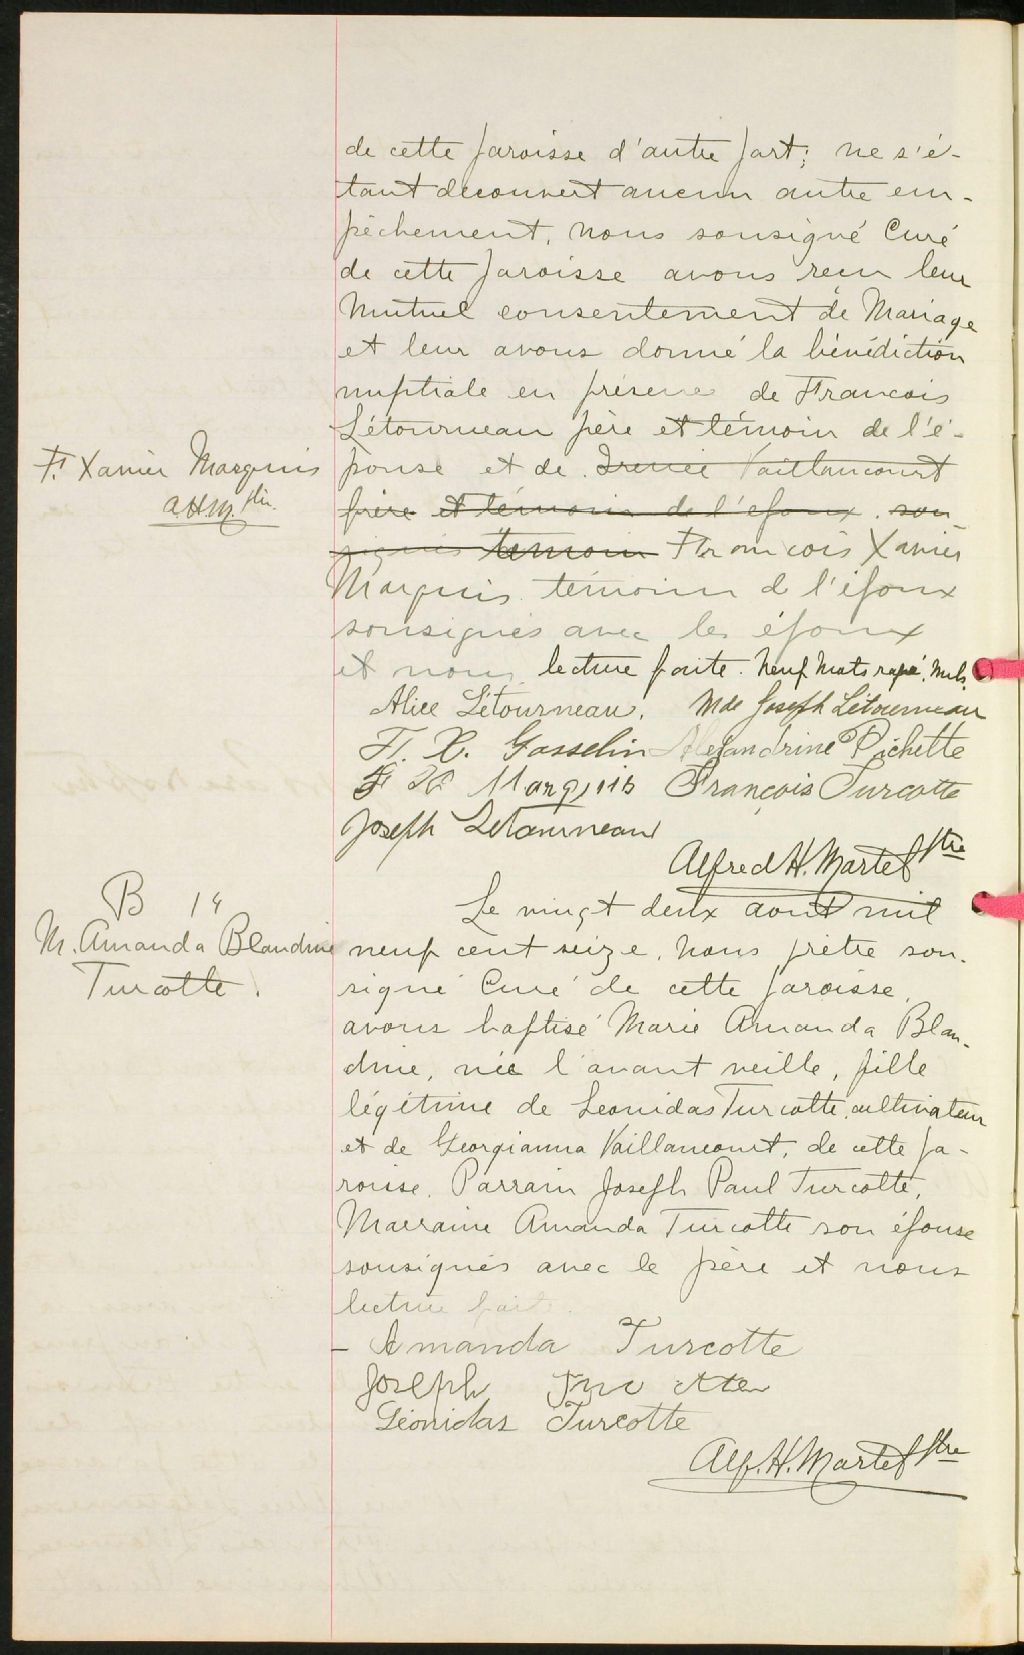 de cette paroisse d'autre part; ne s'é-
tant decouvert aucun autre em-
pêchement, nous sousigné Curé
de cette paroisse avons recu leur
Mutuel consentement de Mariage
et leur avons donné la bénédiction
nuptiale en présence de Francois
Létourneau père et témoin de l'é-
F. Xavier Marquis
pouse et de Irenée Vaillancourt
A.H.M. ptre.
frère et témoin de l'époux sou-
signés temoin Francois Xavier
Marquis témoin d l'époux
sousignés avec les époux
et nous lecture faite. Neuf Mots rayé nuls.
Alice Létourneau. Mde Joseph Létourneau
F. X. Gosselin Alexandrine Pichette
F X Marquis François Turcotte
Joseph Letourneau
Alfred H. Martel ptre
B 14
Le vingt deux aout mil
M. Amanda Blandine
neuf cent seize, nous prêtre sou-
Turcotte.
signé Curé de cette paroisse,
avons baptisé Marie Amanda Blan-
dine, née l'avant veille, fille
légitime de Leonidas Turcotte, cultivateur
et de Georgianna Vaillancourt, de cette pa-
roisse. Parrain Joseph Paul Turcotte,
Marraine Amanda Turcotte son épouse
sousignés avec le père et nous
lecture faite.
- Amanda Turcotte
Joseph Turcotte
Léonidas Turcotte
Alf. H. Martel ptre